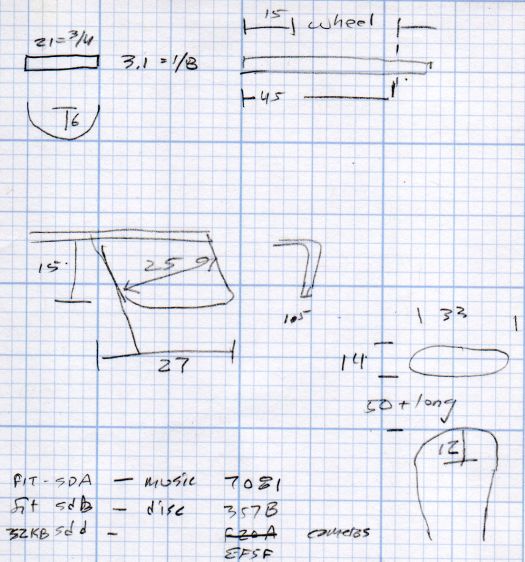 15 wheel
21=3/4
3.1 = 1/8
45
6
15
25
27
1 33 1
14
50 + long
12
FIT-SDA - MUSIC 7081
fit sdb - disc 357B
32KB sdd - cameras
EF5F